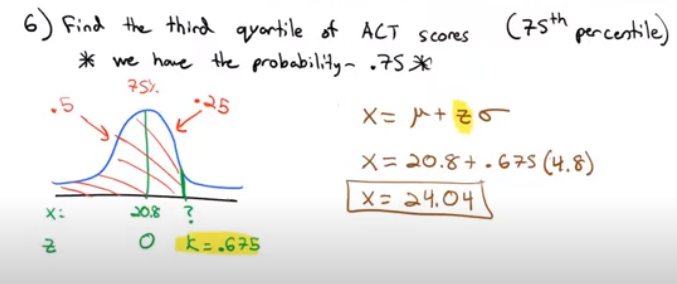 6) Find the third quartile of ACT scores (75th percentile)
* we have the probability - .75 *
75%
.5
.25
x = μ + zσ
x = 20.8 + .675 (4.8)
x = 24.04
x: 20.8 ?
z 0 k = .675